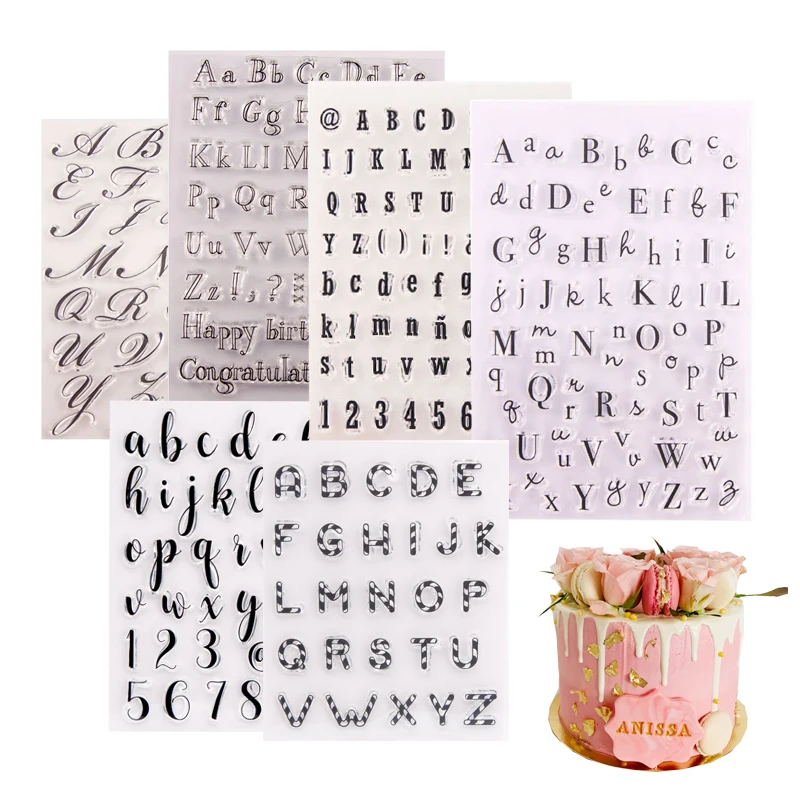 A B
E F
I J
M N
Q R
U V
Y Z
Aa Bb Cc Dd Ee
Ff Gg H
Kk Ll M
Pp Qq R
Uu Vv W
Zz!,? xxx
Happy birt
Congratulat
@ A B C D
I J K L M N
Q R S T U
Y Z ( ) ¡ ! ¿
b c d e f g
k l m n ñ o
s t u v w x
1 2 3 4 5 6
A a a B b b C c c
d d D e e E f f F
G g g H h h i I i
j j J k k K l l L
M m m N n n O o P
q q Q r r R s s o p S t T p
U u u V v v W w w
x x Y y y Z z z
a b c d e
h i j k l
o p q r s
v w x y
1 2 3 @
5 6 7 8
A B C D E
F G H I J K
L M N O P
Q R S T U
V W X Y Z
ANISSA